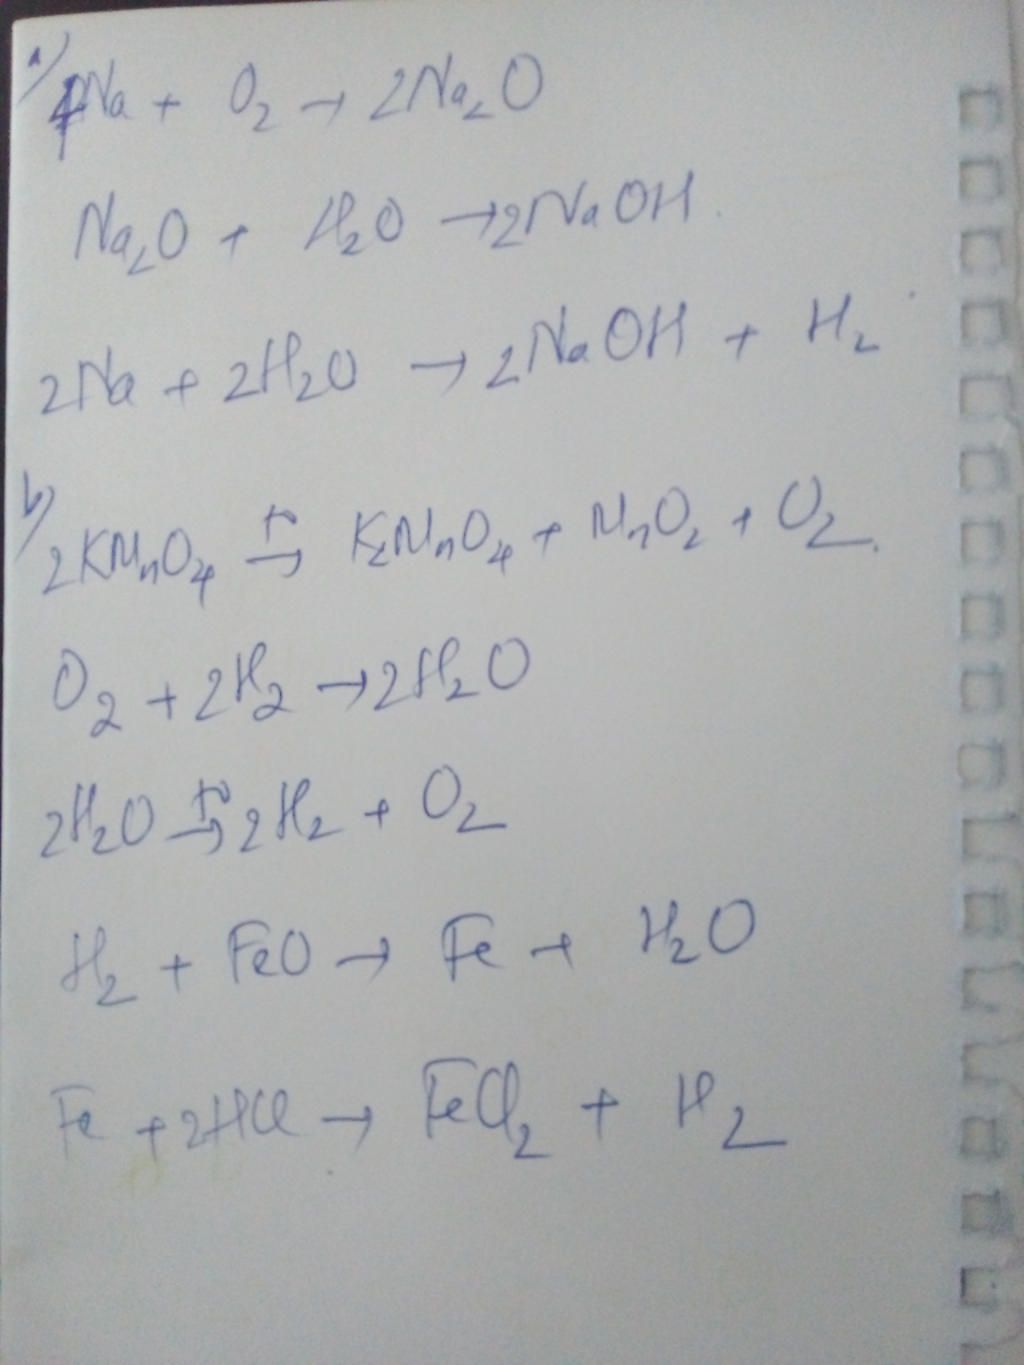 a)
4Na + O₂ → 2Na₂O
Na₂O + H₂O → 2NaOH.
2Na + 2H₂O → 2NaOH + H₂
b)
2KMnO₄ t° → K₂MnO₄ + MnO₂ + O₂.
O₂ + 2H₂ → 2H₂O
2H₂O t° → 2H₂ + O₂
H₂ + FeO → Fe + H₂O
Fe + 2HCl → FeCl₂ + H₂